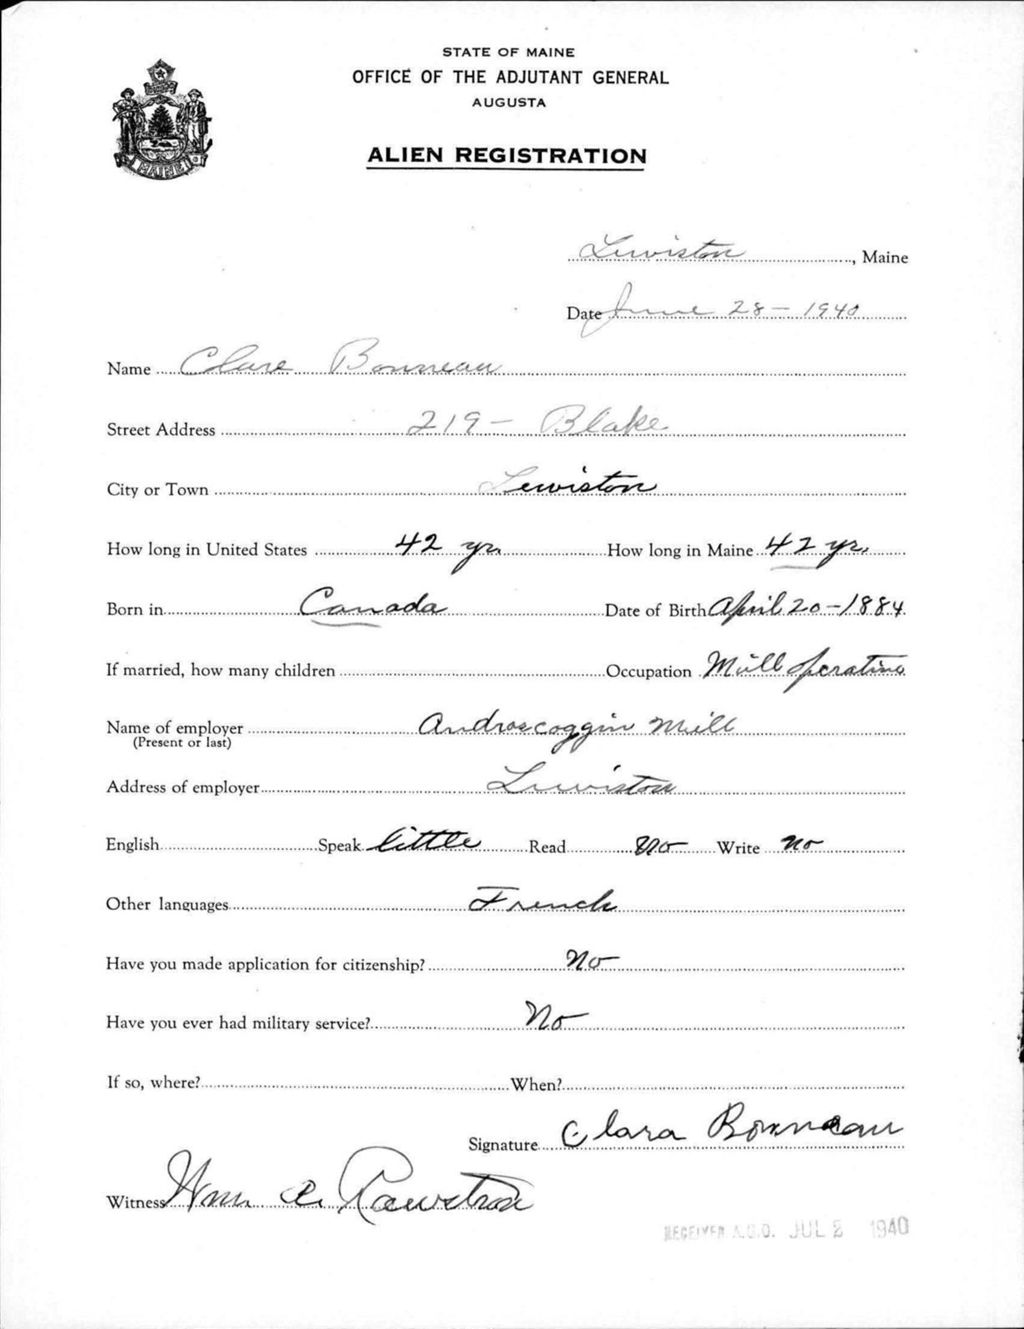 STATE OF MAINE
OFFICE OF THE ADJUTANT GENERAL
AUGUSTA
ALIEN REGISTRATION
MAINE
Lewiston, Maine
Date June 28 - 1940
Name Clare Bonneau
Street Address 219 - Blake
City or Town Lewiston
How long in United States 42 yrs How long in Maine 42 yrs
Born in Canada Date of Birth April 20 - 1884
If married, how many children Occupation Mill operative
Name of employer Androscoggin Mill
(Present or last)
Address of employer Lewiston
English Speak little Read No Write no
Other languages French
Have you made application for citizenship? No
Have you ever had military service? No
If so, where? When?
Signature Clara Bonneau
Witness Wm.
RECEIVED A.G.O. JUL 2 1940